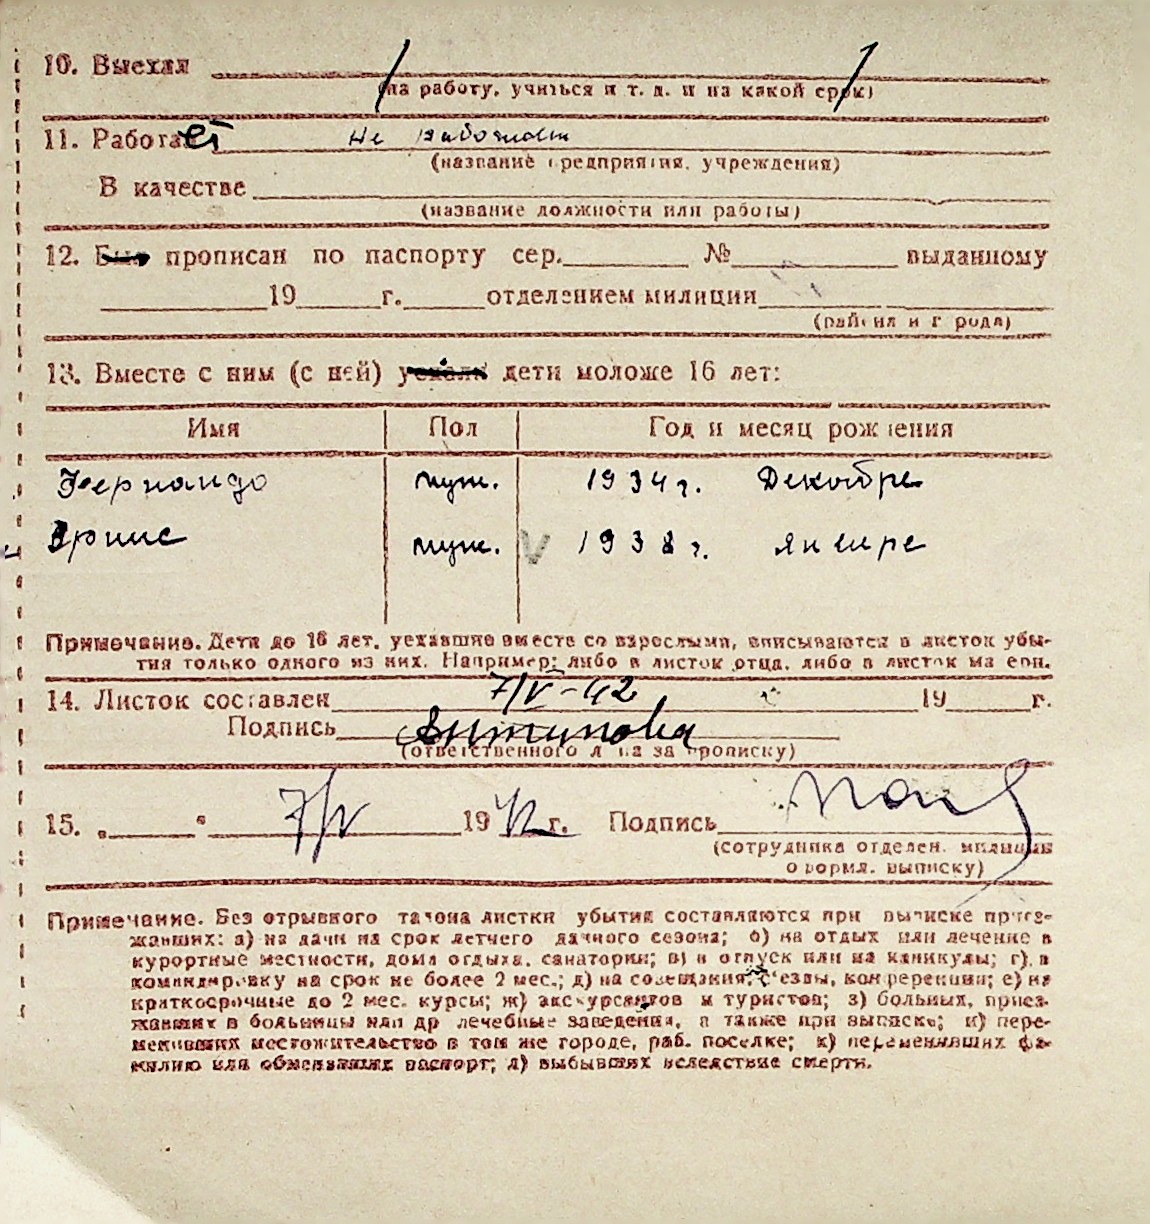 10. Выехал
(на работу, учиться и т. д. и на какой срок)
11. Работает не работает
(название предприятия, учреждения)
В качестве
(название должности или работы)
12. Был прописан по паспорту сер. № выданному
19 г. отделением милиции
(района и города)
13. Вместе с ним (с ней) уехали дети моложе 16 лет:
Имя Пол Год и месяц рождения
Фернандо муж. 1934 г. Декабре
муж. V 1938 г. Январе
Примечание. Дети до 16 лет, уехавшие вместе со взрослыми, вписываются в листок убы-
тия только одного из них. Например: либо в листок отца, либо в листок матери.
14. Листок составлен 7/V-42 19 г.
Подпись Антипова
(ответственного лица за прописку)
15. „ “ 7/V 1942 г. Подпись
(сотрудника отделен. милиции
оформл. выписку)
Примечание. Без отрывного талона листки убытия составляются при выписке приез-
жавших: а) на дачи на срок летнего дачного сезона; б) на отдых или лечение в
курортные местности, дома отдыха, санатории; в) в отпуск или на каникулы; г) в
командировку на срок не более 2 мес.; д) на совещания, с'езды, конференции; е) на
краткосрочные до 2 мес. курсы; ж) экскурсантов и туристов; з) больных, приез-
жавших в больницы или др лечебные заведения, а также при выписке; и) пере-
менивших местожительство в том же городе, раб. поселке; к) переменявших фа-
милию или обменявших паспорт; л) выбывших вследствие смерти.